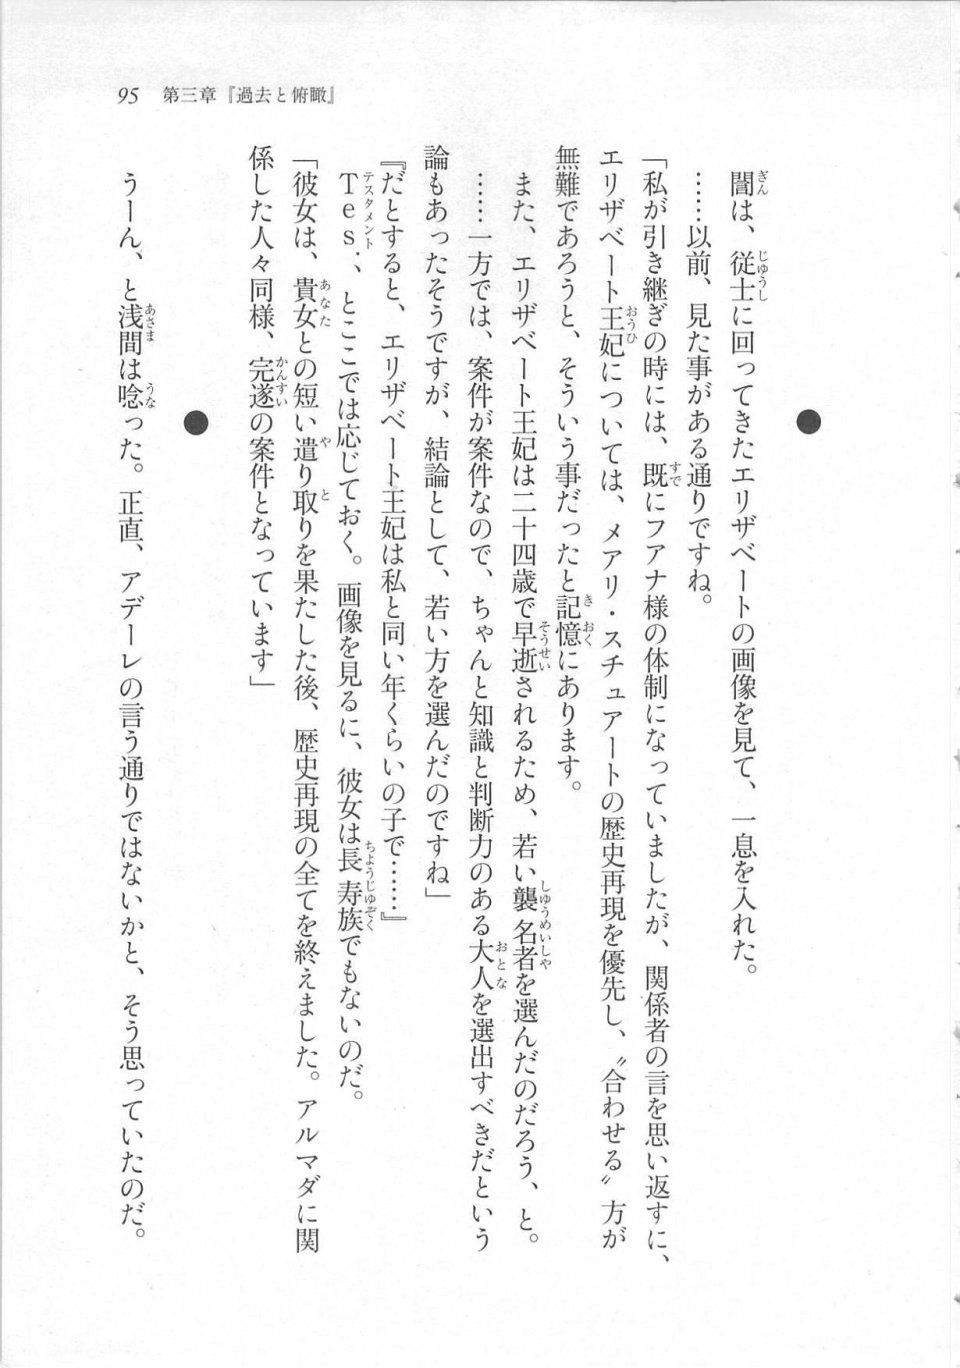 95　第三章『過去と俯瞰』
●
　誾は、従士に回ってきたエリザベートの画像を見て、一息を入れた。
　……以前、見た事がある通りですね。
「私が引き継ぎの時には、既にフアナ様の体制になっていましたが、関係者の言を思い返すに、
エリザベート王妃については、メアリ・スチュアートの歴史再現を優先し、〝合わせる〟方が
無難であろうと、そういう事だったと記憶にあります。
　また、エリザベート王妃は二十四歳で早逝されるため、若い襲名者を選んだのだろう、と。
　……一方では、案件が案件なので、ちゃんと知識と判断力のある大人を選出すべきだという
論もあったそうですが、結論として、若い方を選んだのですね」
『だとすると、エリザベート王妃は私と同い年くらいの子で……』
　Ｔｅｓ．、とここでは応じておく。画像を見るに、彼女は長寿族でもないのだ。
「彼女は、貴女との短い遣り取りを果たした後、歴史再現の全てを終えました。アルマダに関
係した人々同様、完遂の案件となっています」
●
　うーん、と浅間は唸った。正直、アデーレの言う通りではないかと、そう思っていたのだ。